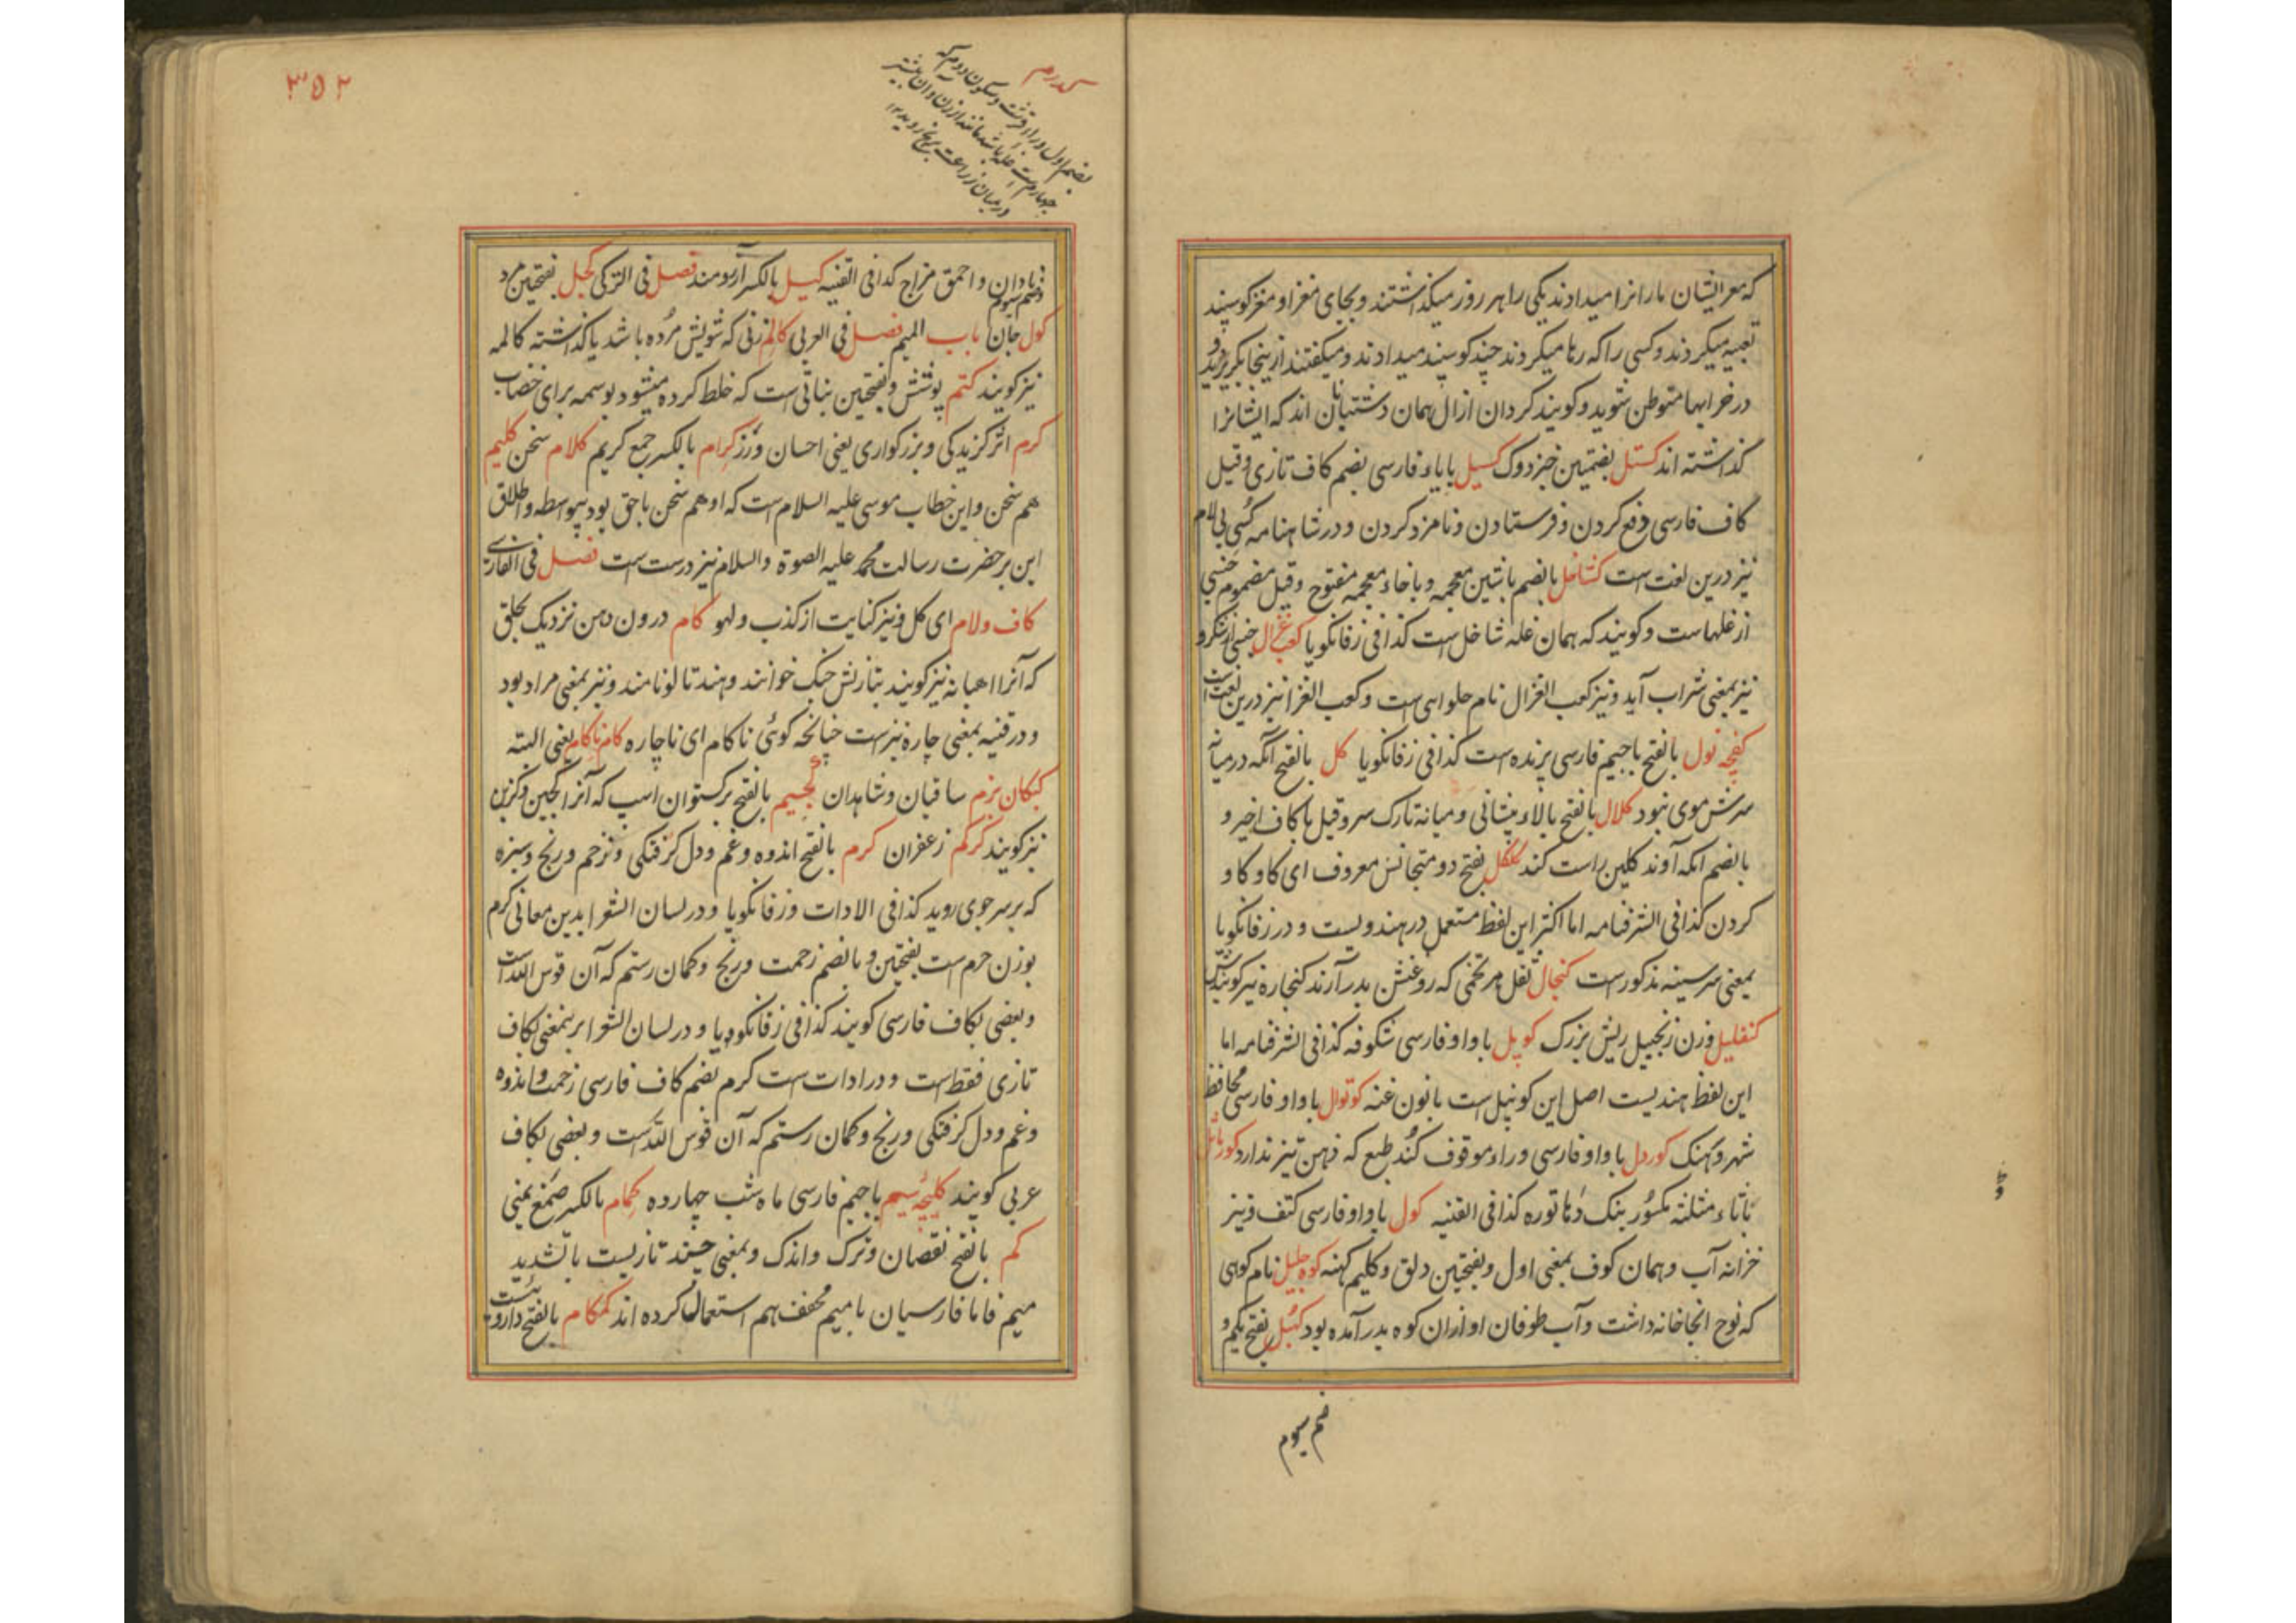 که مغز ایشان مارانرا میدادند یکی را هر روز میگذاشتند و بجای مغز او مغز گوسپند
تعبیه میکردند و کسی را که رها میکردند چند گوسپند میدادند و میگفتند ازینجا بگریزید و
در خرابها متوطن شوید و گویند کردان از ال همان دشتبانان اند که ایشانرا
گذاشته اند کستل بضمتین خبزدوک کسیل بایاء فارسی بضم کاف تازی و قیل
کاف فارسی دفع کردن و فرستادن و نامزد کردن و در شاهنامه کسی بی لام
نیز درین لغت است کشاخل بالضم باشین معجمه و باخاء معجمه مفتوح و قیل مضموم جنسی
از غلهاست و گویند که همان غله شاخل است کذا فی زفانگویا کعب غزال جنسی از شکر و
نیز بمعنی شراب آید و نیز کعب الغزال نام حلوایی است و کعب الغزا نیز درین لغت است
کفچه نول بالفتح باجیم فارسی پرنده است کذا فی زفانگویا کل بالفتح آنکه در میانه
سرش موی نبود کلال بالفتح بالاء پیشانی و میانه تارک سر و قیل با کاف اخیر و
بالضم آنکه آوند گلین راست کند کلکل بفتح دو متجانس معروف ای کاو کاو
کردن کذا فی الشرفنامه اما اکثر این لفظ مستعمل در هندویست و در زفانگویا
بمعنی سرسینه مذکور است کنجال ثفل هر تخمی که روغنش بدر آرند کنجاره نیز گویندش
کنفلیل وزن زنجبیل ریش بزرگ کوپل باواو فارسی شگوفه کذا فی الشرفنامه اما
این لفظ هندیست اصل این کونپل است بانون غنه کوتوال باواو فارسی محافظ
شهر و کهنک کوردل باواو فارسی و راء موقوف کند طبع که ذهن تیز ندارد کورماثل
باثاء مثلثه مکسور بنک دهاتوره کذا فی القنیه کول باواو فارسی کتف و نیز
خزانه آب و همان کوف بمعنی اول و بفتحتین دلق و کلیم کهنه کوه جلیل نام کوهی
که نوح انجا خانه داشت و آب طوفان او از ان کوه بدر آمده بود کهبل بفتح یکم و
ضم سیوم
۳۵۲
کدرم
بضم اول و راء قرشت و سکون دوم که
چهارم است غله باشد مانند ارزن و آن بیشتر
در میان زراعت برنج روید ۱۲
و ضم سیوم
نادان و احمق مزاج کذا فی القنیه کیل بالکسر آرزومند فصل فی الترکی کجل بفتحتین مرد
کول جان باب المیم فصل فی العربی کالم زنی که شویش مرده باشد یا گذاشته کالمه
نیز گویند کتم پوشش و بفتحتین نباتی است که خلط کرده میشود بوسمه برای خضاب
کرم اثر گزیدگی و بزرگواری یعنی احسان و رز کرام بالکسر جمع کریم کلام سخن کلیم
هم سخن و این خطاب موسی علیه السلام است که او هم سخن با حق بود بیواسطه و اطلاق
این بر حضرت رسالت محمد علیه الصلوة والسلام نیز درست است فصل فی الفارسی
کاف ولام ای کل و نیز کنایت از کذب و لهو کام درون دهن نزدیک بحلق
که آنرا اهیانه نیز گویند بتازیش حنک خوانند و هند تالو نامند و نیز بمعنی مراد بود
و در قنیه بمعنی چاره نیز است چنانچه گوئی ناکام ای ناچاره کام ناکام یعنی البته
کبکان بزم ساقیان و شاهدان کجیم بالفتح برگستوان اسپ که آنرا کجین و کزین
نیز گویند کرکم زعفران کرم بالفتح اندوه و غم و دل گرفتگی و نرحم و رنج و سبزه
که بر سر جوی روید کذا فی الادات و زفانگویا و در لسان الشعرا بدین معانی کرم
بوزن حرم است بفتحتین و بالضم زحمت و رنج و کمان رستم که آن قوس الله است
و بعضی بکاف فارسی گویند کذا فی زفانگویا و در لسان الشعرا برینمعنی بکاف
تازی فقط است و در ادات است کرم بضم کاف فارسی زحمت و اندوه
و غم و دل گرفتگی و رنج و کمان رستم که آن قوس الله است و بعضی بکاف
عربی گویند کلیچه سیم باجیم فارسی ماه شب چهارده کمام بالکسر صمغ یمنی
کم بالفتح نقصان و ترک و اندک و بمعنی چند تازیست باتشدید
میم فاما فارسیان بامیم مخفف هم استعمال کرده اند کمکام بالفتح داروئیست